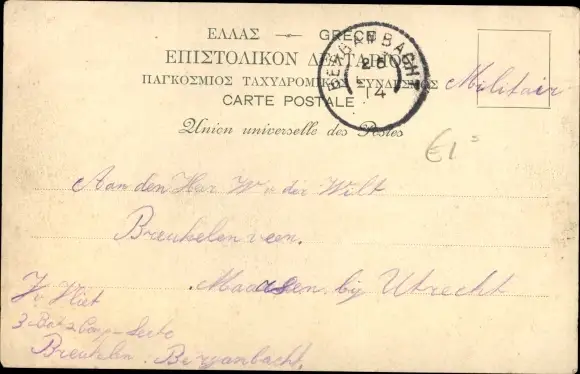 ΕΛΛΑΣ — GRÈCE
ΕΠΙΣΤΟΛΙΚΟΝ ΔΕΛΤΑΡΙΟΝ
ΠΑΓΚΟΣΜΙΟΣ ΤΑΧΥΔΡΟΜΙΚΟΣ ΣΥΝΔΕΣΜΟΣ
CARTE POSTALE
Union universelle des Postes
BERGAMBACHT
14
Militair
€1
Aan den Heer W v der Wilt
Breukelen veen.
Maarsen bij Utrecht
J v Vliet
3 Bat 2 Comp
Breukelen. Berganbacht.